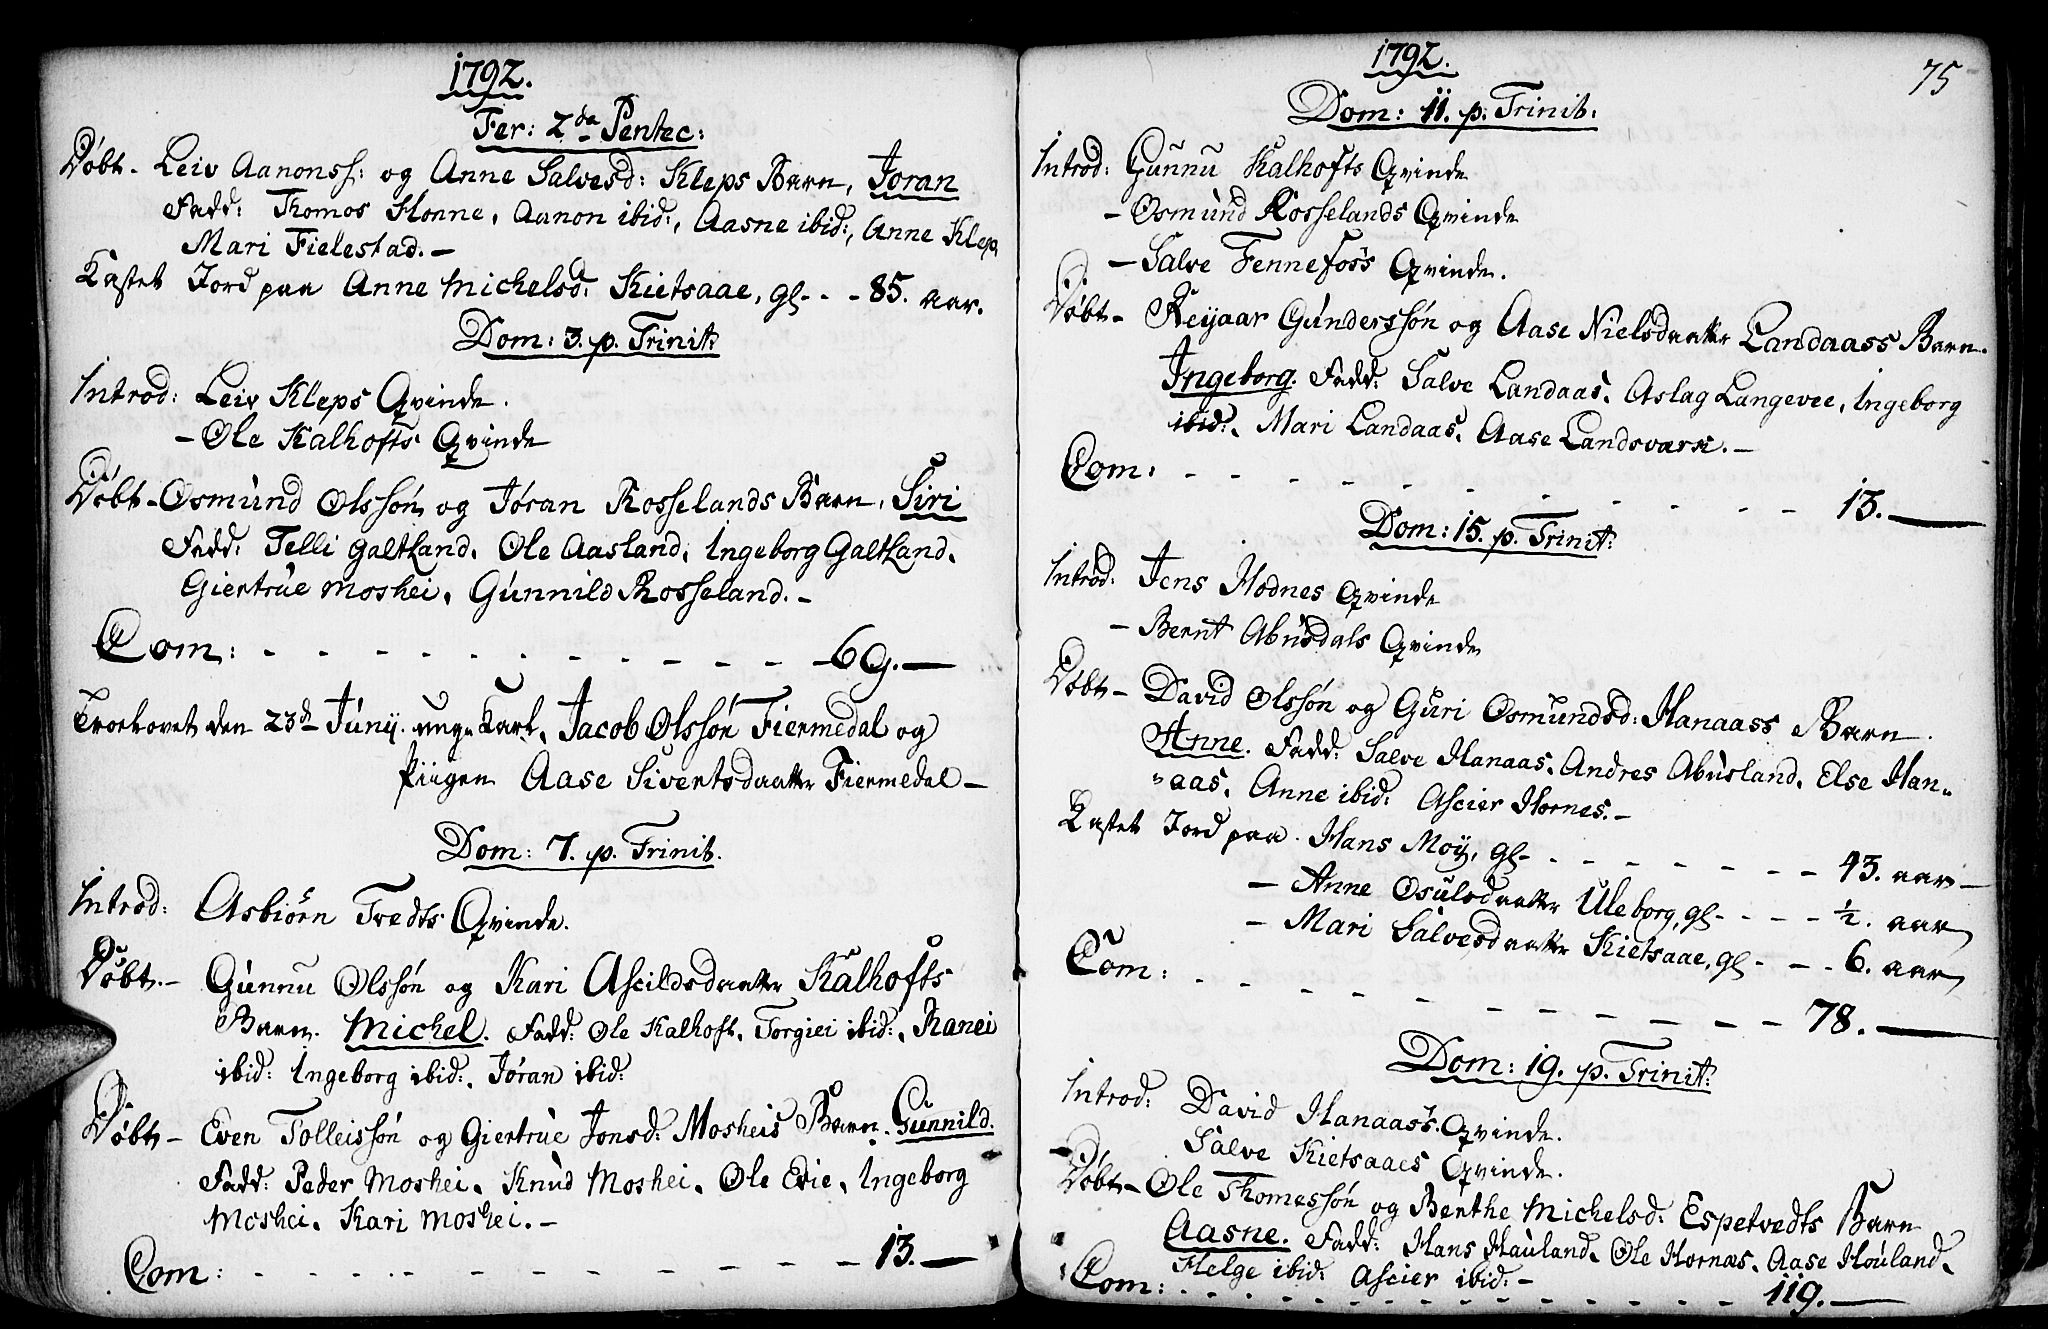 1792.
Fer: 2da Pentec:
Døbt - Leiv Aanonss: og Anne Salvesd: Kleps Barn, Joran
Fadd: Thomos Honne, Aanon ibid:, Aasne ibid:, Anne Klep,
Mari Fielestad. -
Kastet Jord paa Anne Michelsd: Kietsaae, gl - - - 85. aar.
Dom: 3. p. Trinit:
Introd: Leiv Kleps Qvinde.
- Ole Kalhofts Qvinde
Døbt - Osmund Olssøn og Jøran Rosselands Barn, Siri
Fadd: Telli Galteland, Ole Aasland, Ingeborg Galteland,
Giertrue Moshei, Gunnild Rosseland. -
Com: - - - - - - - - - - - - 69. -
Troelovet den 23de Junij. ung Karl, Jacob Olssøn Fiermedal og
Piigen Aase Sivertsdaatter Fiermedal -
Dom: 7. p. Trinit.
Introd: Asbiørn Tvedts Qvinde.
Døbt. - Gunnu Olssøn og Kari Ascildsdaatter Kalhofts
Barn. Michel. Fadd: Ole Kalhoft, Torgiei ibid:, Ranei
ibid: Ingeborg ibid:, Jøran ibid:
Døbt - Even Tolleissøn og Giertrue Jonsd: Mosheis Barn. Gunnild.
Fadd: Peder Moshei, Knud Moshei, Ole Evie, Ingeborg
Moshei, Kari Moshei. -
Com: - - - - - - - - - - - - - 13. -
1792.
75
Dom: 11. p. Trinit:
Introd: Gunnu Kalhofts Qvinde
- Osmund Rosselands Qvinde
- Salve Fennefoss Qvinde.
Døbt - Reijaar Gunderssøn og Aase Nielsdaatter Landaass Barn.
Ingeborg. Fadd: Salve Landaas, Aslag Langevee, Ingeborg
ibid:, Mari Landaas, Aase Landsvark. -
Com: - - - - - - - - - - - - - - 13. -
Dom: 15. p. Trinit:
Introd: Jens Hodnes Qvinde
- Bernt Abusdals Qvinde
Døbt - David Olssøn og Guri Osmundsd: Hanaass Barn.
Anne. Fadd: Salve Hanaas, Andres Abusland, Else Han„
"aas, Anne ibid: Ascier Hornes. -
Kastet Jord paa Hans Moy, gl - - - - - - - - 43. aar -
- Anne Osulsdaatter Uleborg, gl - - - - ½. aar
- Mari Salvesdaatter Kietsaae, gl - - - - 6. aar
Com: - - - - - - - - - - - - - - 78. -
Dom: 19. p. Trinit:
Introd: David Hanaass Qvinde.
Salve Kietsaaes Qvinde.
Døbt - Ole Thomessøn og Berthe Michelsd: Espetvedts Barn
Aasne. Fadd: Hans Hauland, Ole Hornæs, Aase Houland,
Helge ibid: Ascier ibid: -
Com: - - - - - - - - - - - - - - 119. -